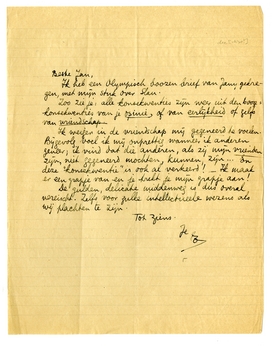 Beste Jan,
Ik heb een Olympisch doozen brief van Jany gekre-
gen, met mijn stuk over Slau.
Zoo zie je, alle konsekwenties zijn weg uit den boog:
konsekwenties van je opinie, of van eerlijkheid of zelfs
van vriendschap.
Ik weiger in de vriendschap mij gegeneerd te voelen.
Bijgevolg voel ik mij onprettig wanneer ik anderen
geneer; ik vind dat die anderen, als zij mijn vrienden
zijn, niet gegeneerd mochten, kunnen, zijn... En
deze "konsekwentie" is ook al verkeerd! Ik maak
er een grapje van en je trekt je mijn grapje aan!
De gulden, delicate middenweg is dus overal
vereischt. Zelfs voor zulke intellectueele wezens als
wij plachten te zijn.
Tot ziens.
Je